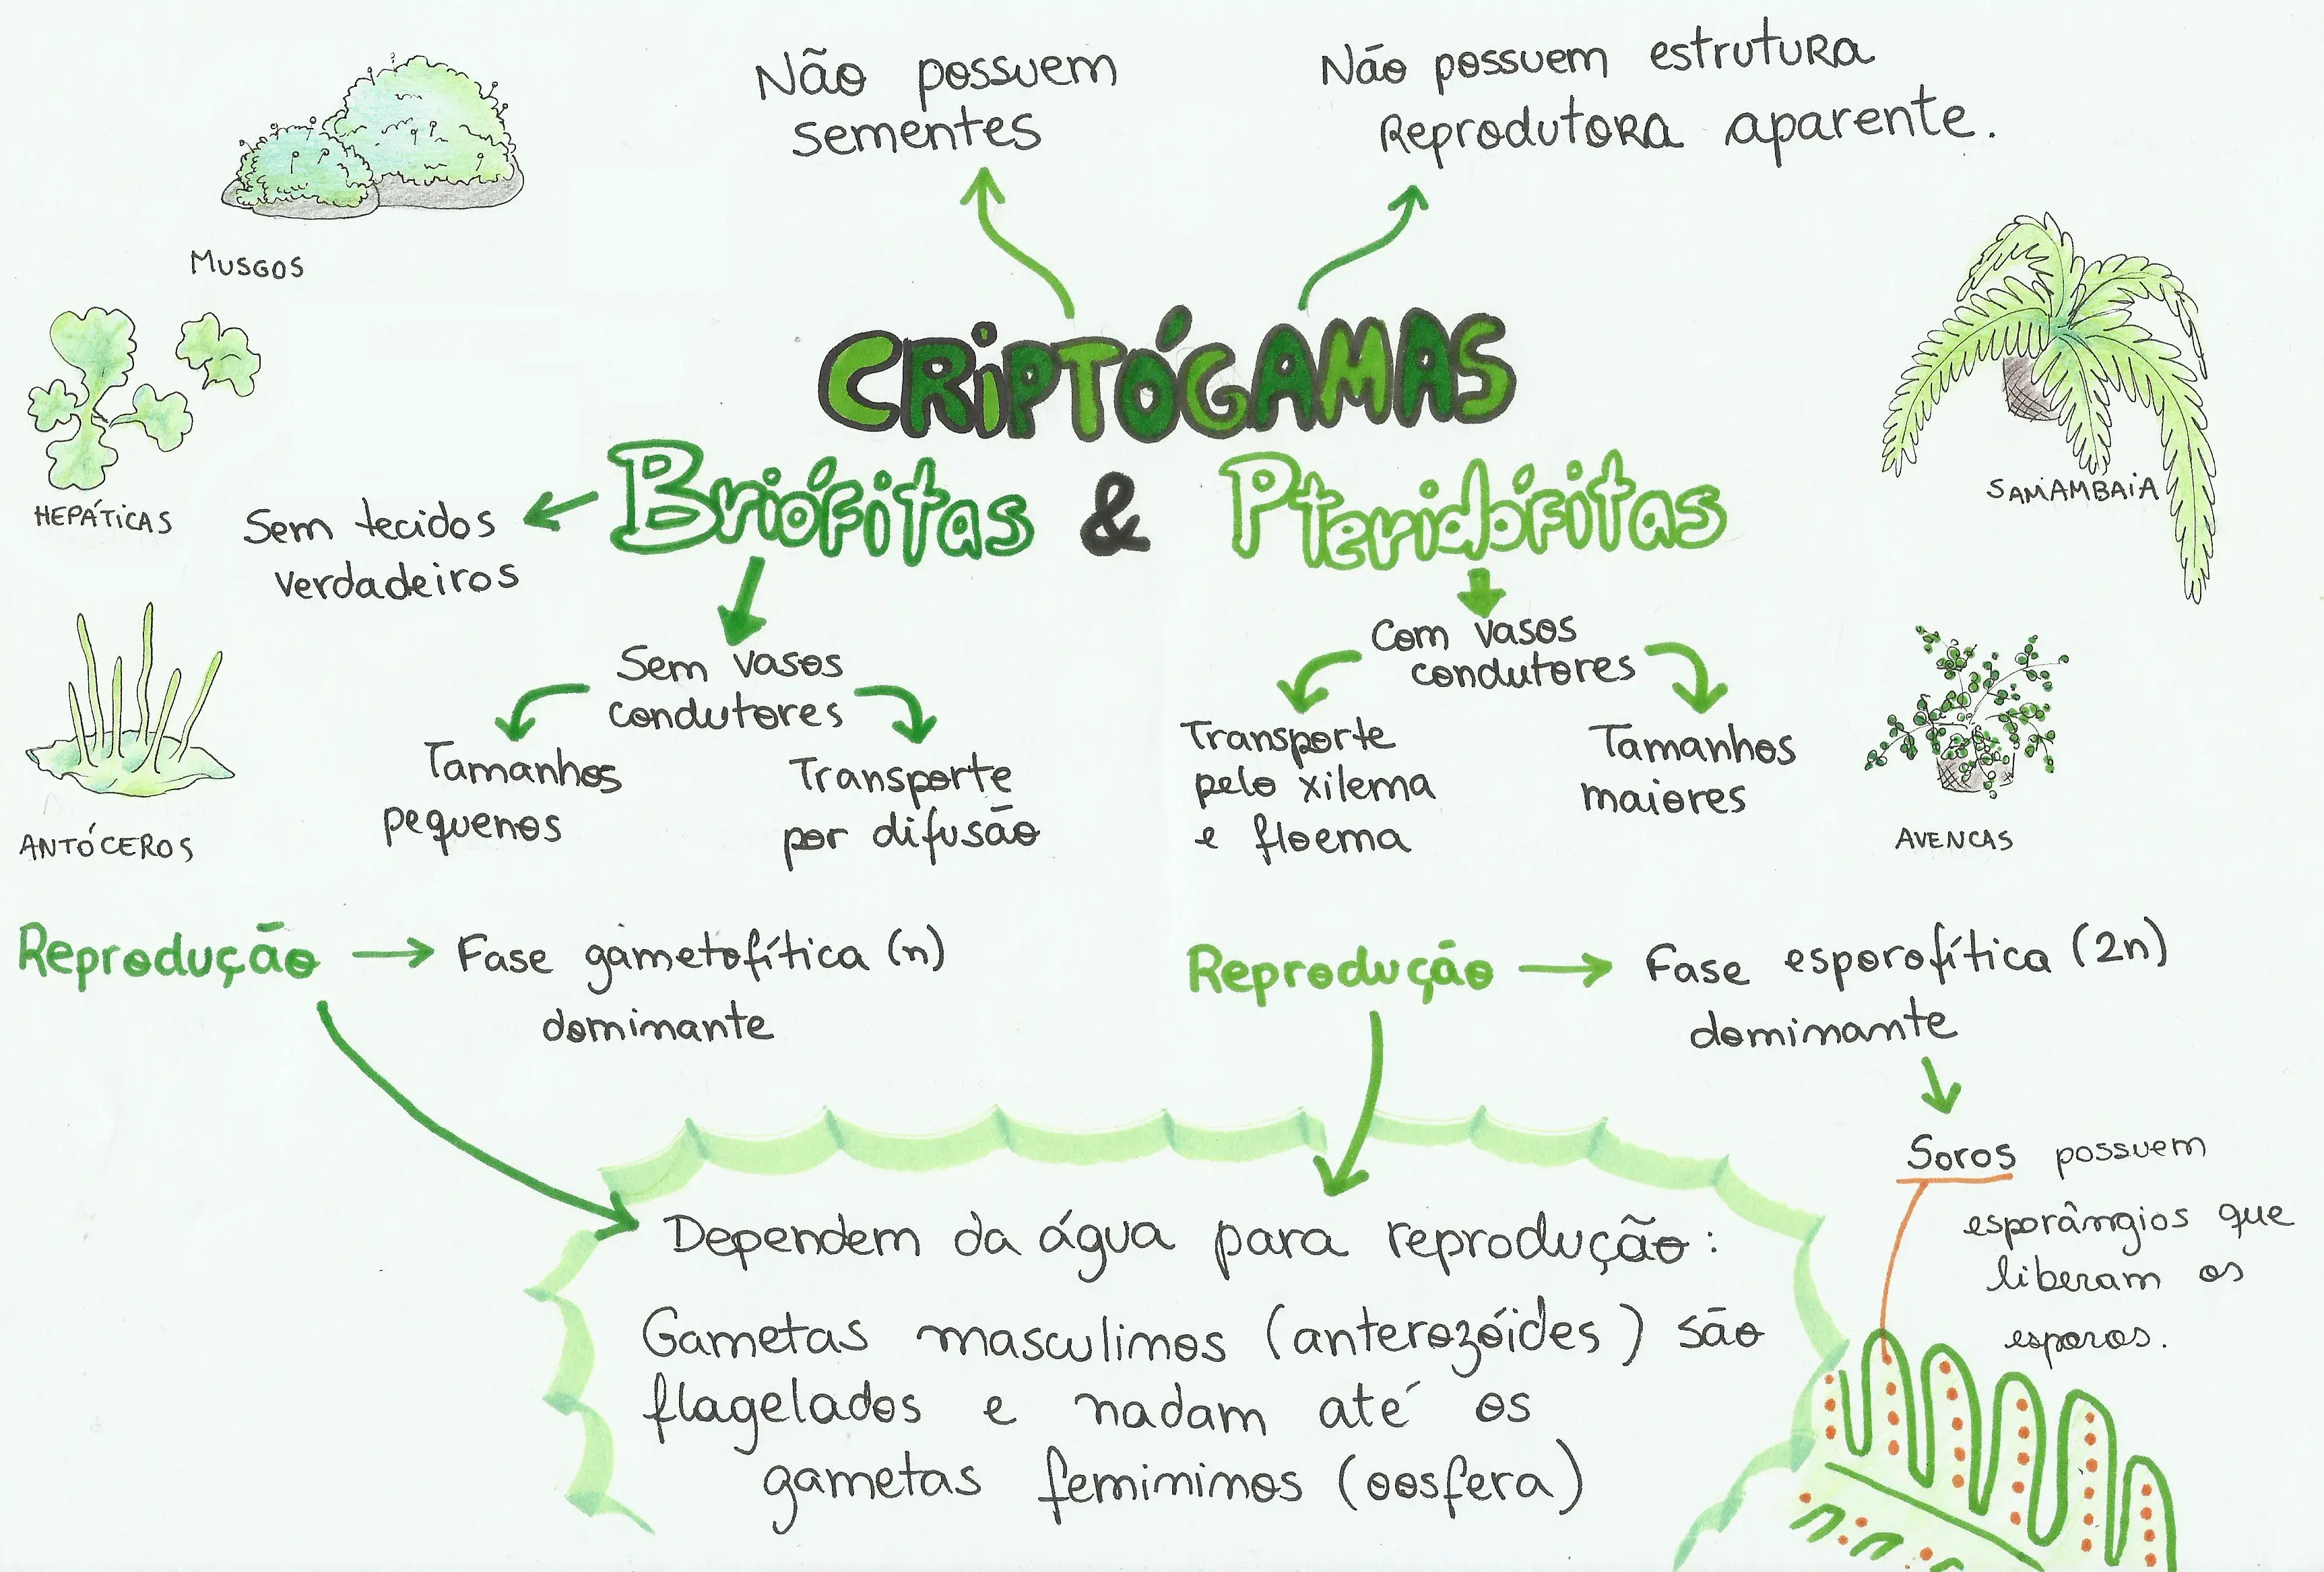 Não possuem
sementes
Não possuem estrutura
Reprodutora aparente.
MUSGOS
CRIPTÓGAMAS
Briófitas & Pteridófitas
HEPÁTICAS
SAMAMBAIA
Sem tecidos
verdadeiros
Sem vasos
condutores
Tamanhos
pequenos
Transporte
por difusão
Com vasos
condutores
Transporte
pelo xilema
e floema
Tamanhos
maiores
ANTÓCEROS
AVENCAS
Reprodução → Fase gametofítica (n)
dominante
Reprodução → Fase esporofítica (2n)
dominante
Soros possuem
esporângios que
liberam os
esporos.
Dependem da água para reprodução:
Gametas masculinos (anterozóides) são
flagelados e nadam até os
gametas femininos (oosfera)